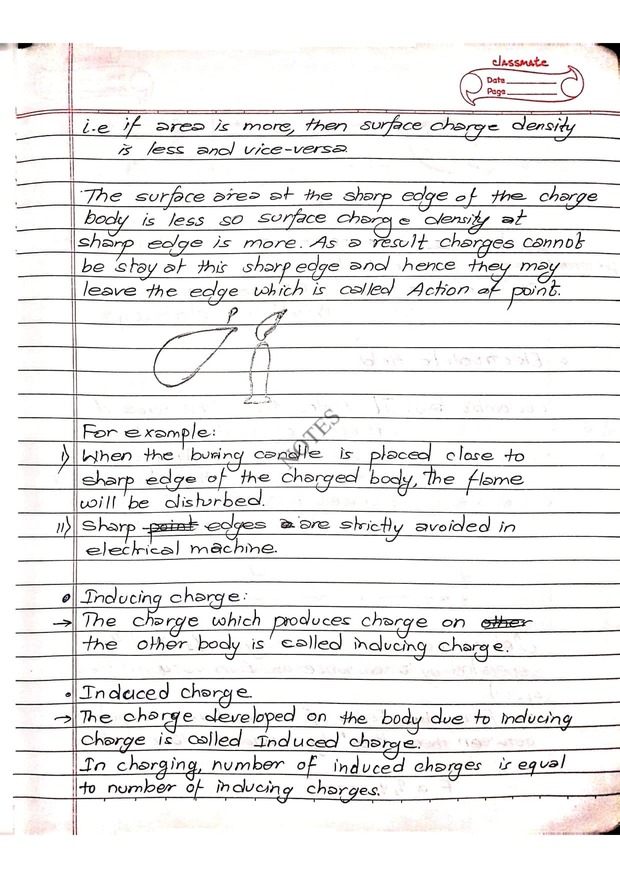 classmate
Date
Page
i.e if area is more, then surface charge density
is less and vice-versa
The surface area at the sharp edge of the charge
body is less so surface charge density at
sharp edge is more. As a result charges cannot
be stay at this sharp edge and hence they may
leave the edge which is called Action of point.
P
For example:
NOTES
i) When the buring candle is placed close to
sharp edge of the charged body, the flame
will be disturbed.
ii) Sharp point edges are strictly avoided in
electrical machine.
• Inducing charge:
→ The charge which produces charge on other
the other body is called inducing charge.
• Induced charge.
→ The charge developed on the body due to inducing
charge is called Induced charge.
In charging, number of induced charges is equal
to number of inducing charges.